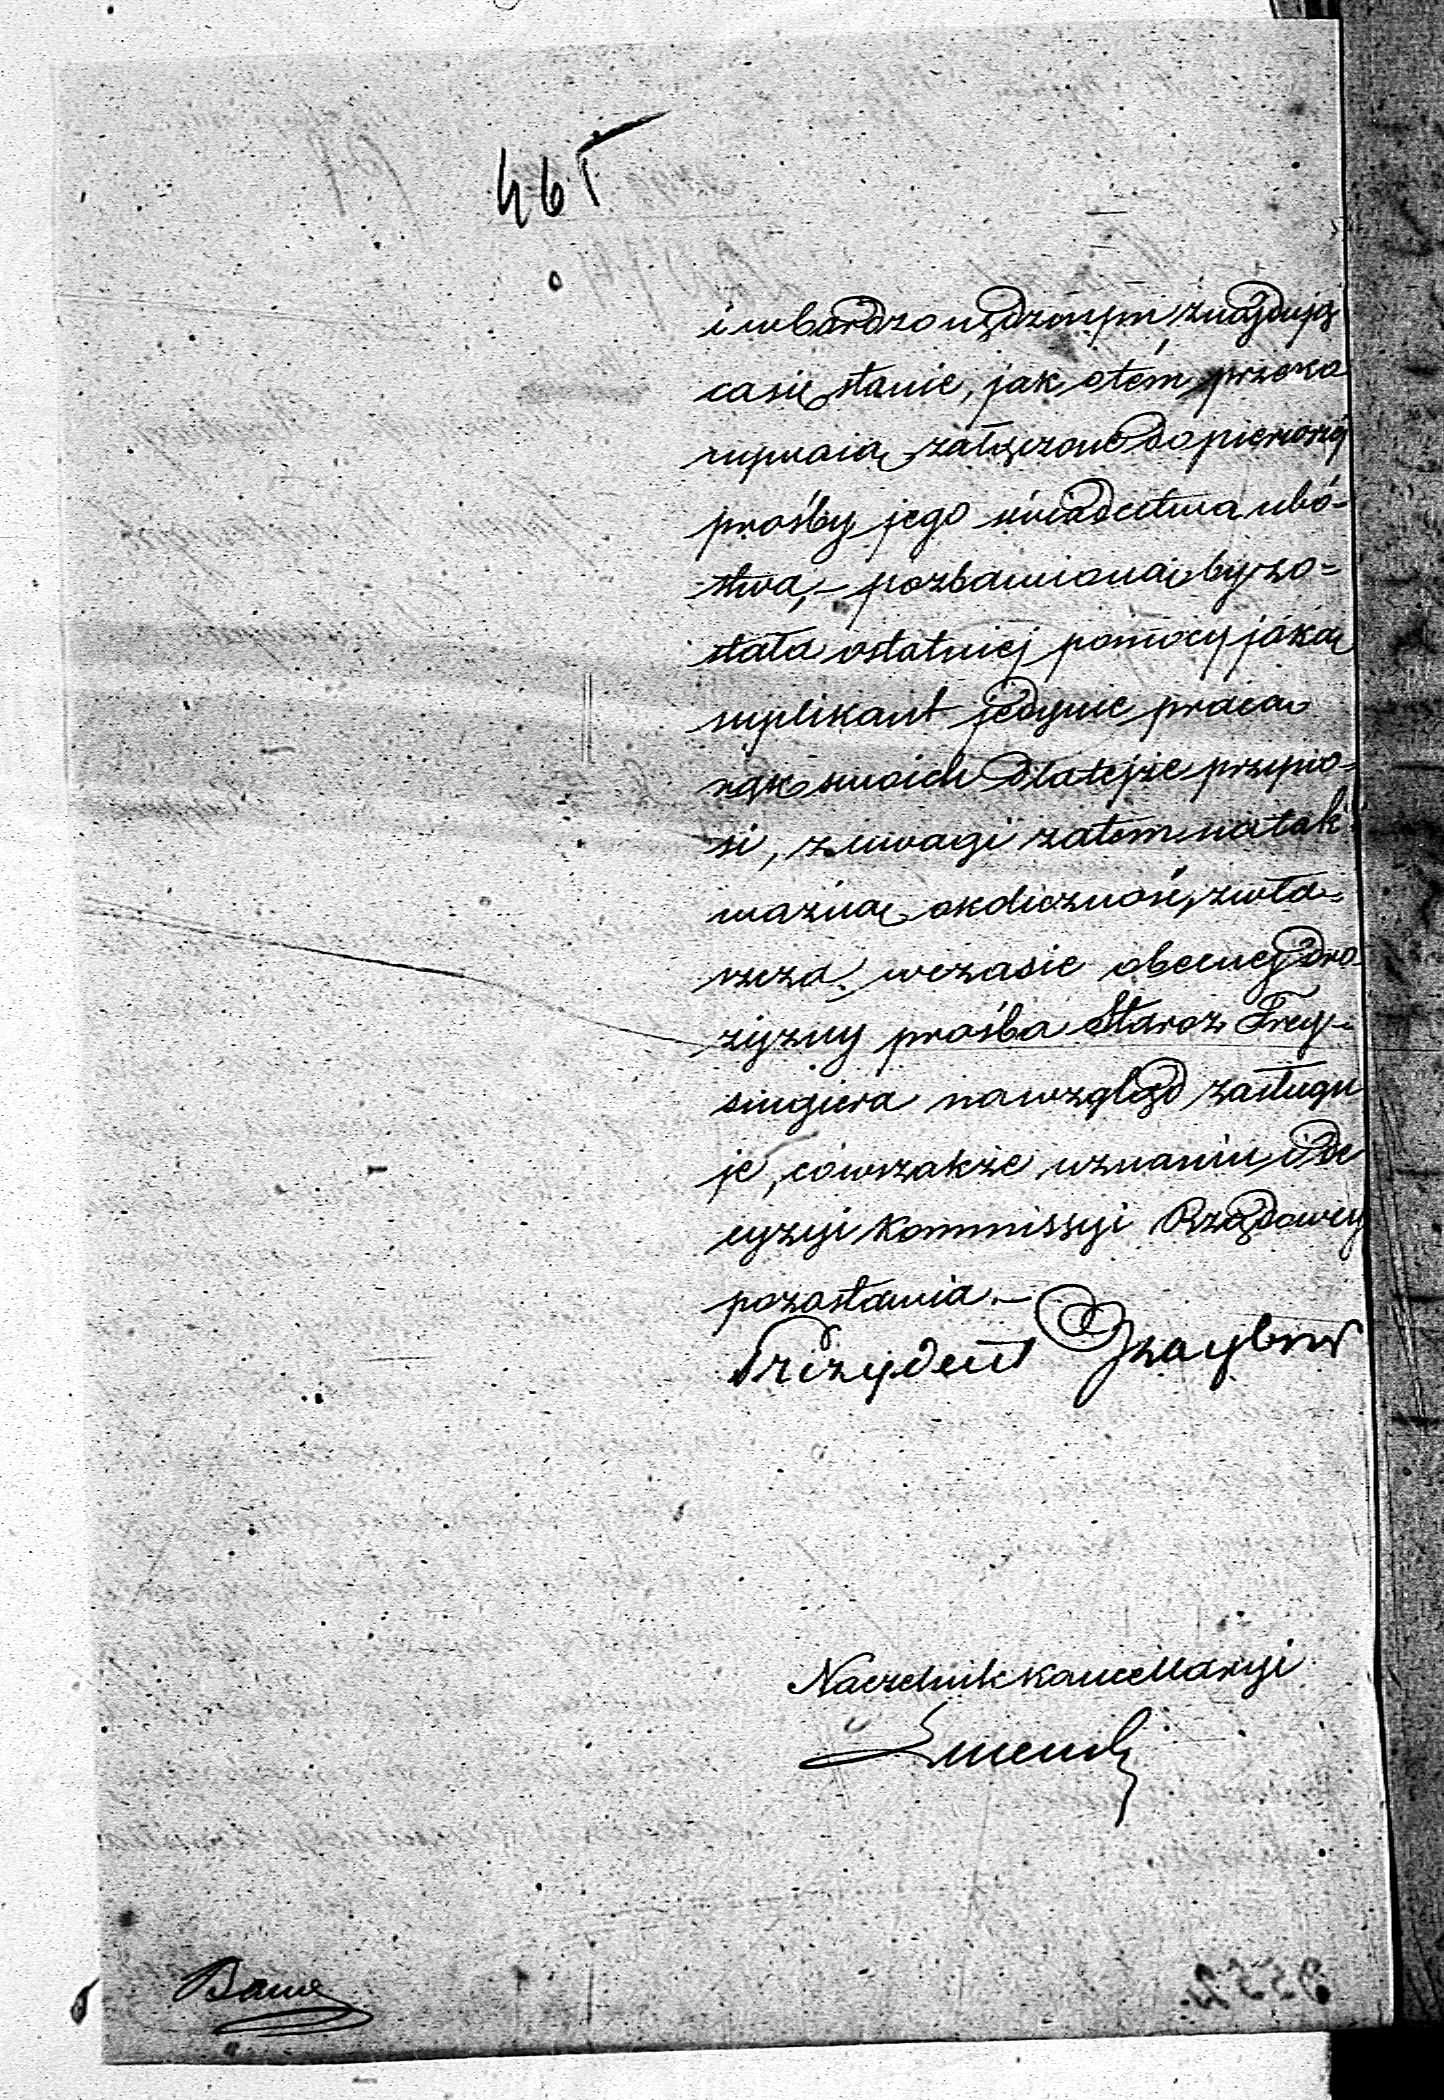 i w bardzo nędznym znajdują
ca się stanie, jak o tém przeko
nywaią załączone do pierwszej
prośby jego świadectwa ubó-
stwa, – pozbawioną by zo=
stała ostatniej pomocy jaką
suplikant jedynie pracą
rąk swoich dla tejże przyno-
si, z uwagi zatem na tak
ważną okoliczność, zwła-
szcza w czasie obecnej dro
żyzny prośba Staroz. Frey-
singiera na wzgląd zasługu
je, co wszakże uznaniu i de
cyzyi Kommissyi Rządowey
pozostawia. –
Prezydent
Naczelnik Kancellaryi